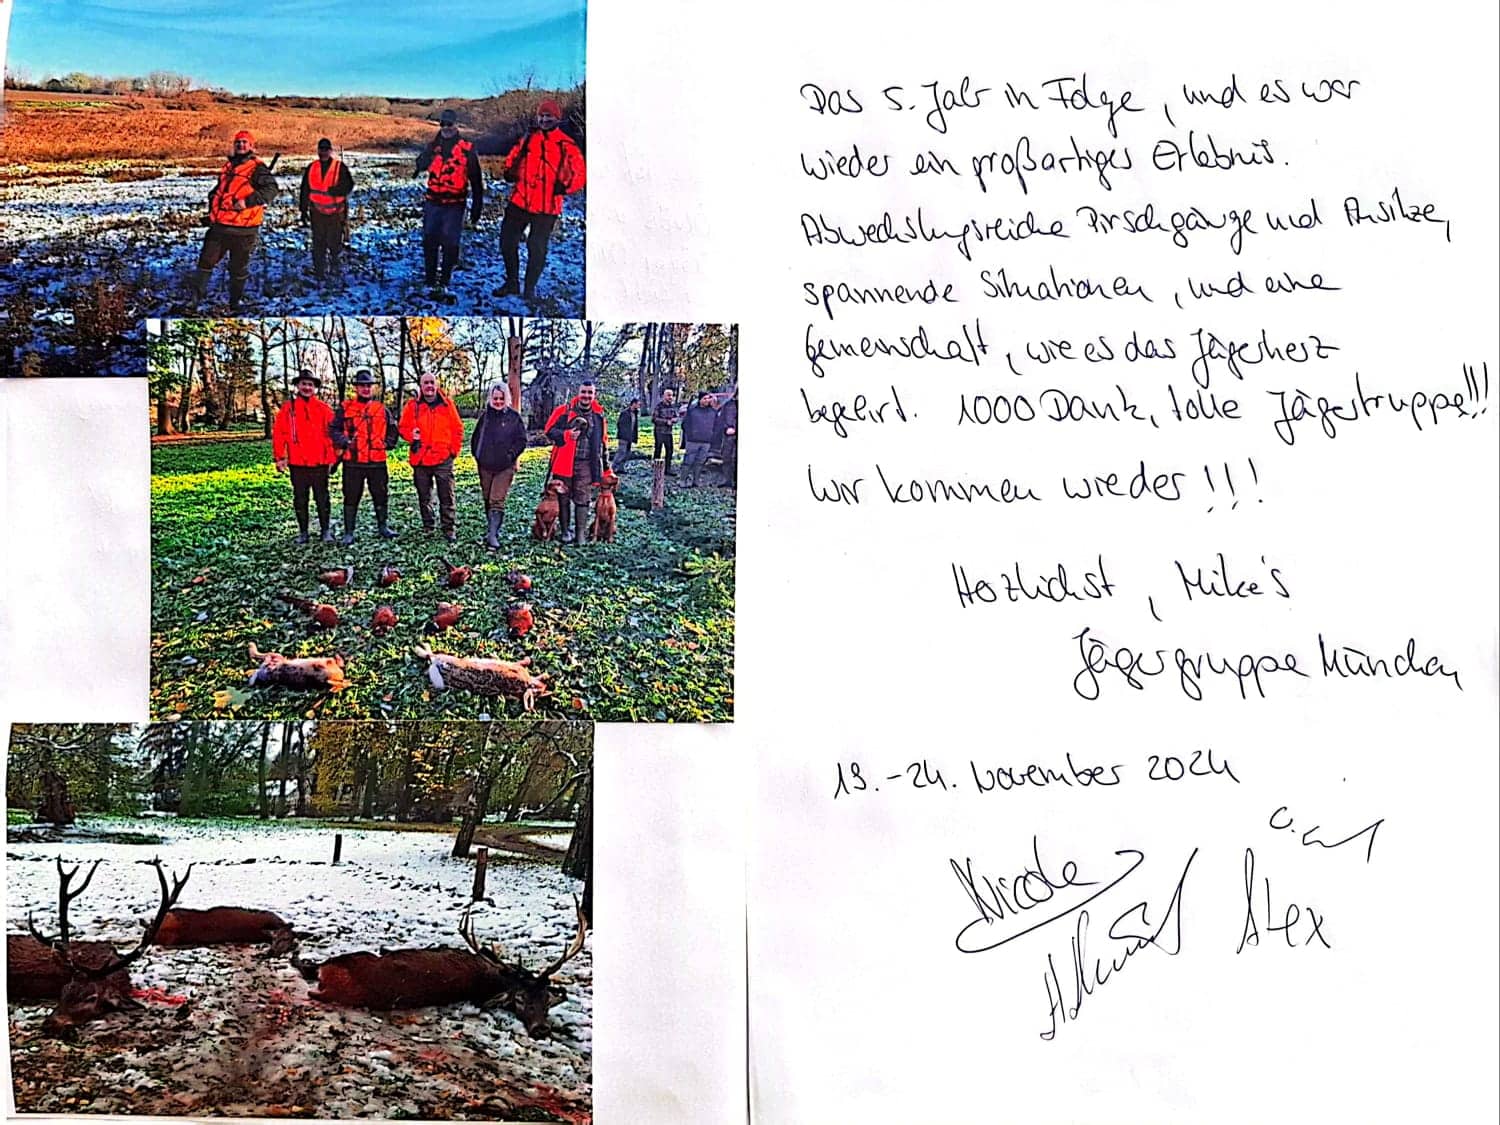 Das 5. Jahr in Folge, und es war
wieder ein großartiges Erlebnis.
Abwechslungsreiche Pirschgänge und Ansitze,
spannende Situationen, und eine
Gemeinschaft, wie es das Jägerherz
begehrt. 1000 Dank, tolle Jägertruppe!!!
Wir kommen wieder!!!
Herzlichst, Mike's
Jägergruppe München
19.-24. November 2024
Nicole
Alex